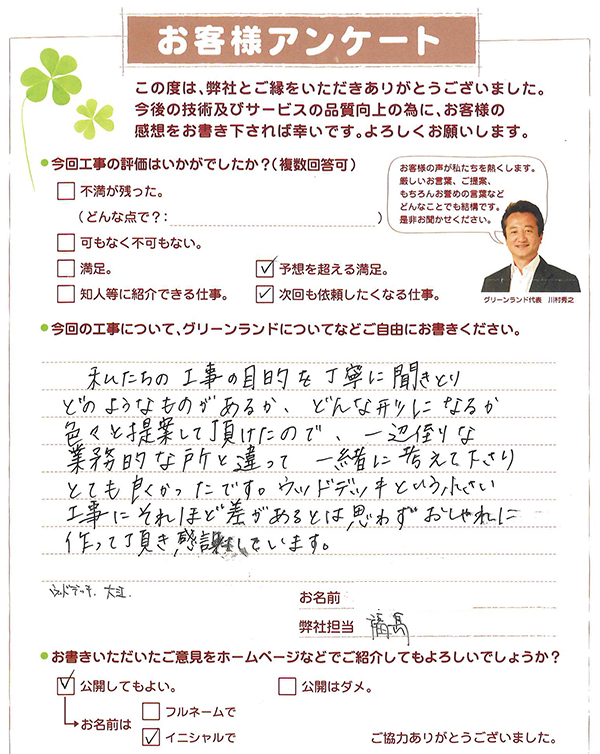 お客様アンケート
この度は、弊社とご縁をいただきありがとうございました。
今後の技術及びサービスの品質向上の為に、お客様の
感想をお書き下されば幸いです。よろしくお願いします。
●今回工事の評価はいかがでしたか？（複数回答可）
お客様の声が私たちを熱くします。
厳しいお言葉、ご提案、
もちろんお誉めの言葉など
どんなことでも結構です。
是非お聞かせください。
グリーンランド代表 川村秀之
□ 不満が残った。
（どんな点で？： ）
□ 可もなく不可もない。
□ 満足。 ☑ 予想を超える満足。
□ 知人等に紹介できる仕事。 ☑ 次回も依頼したくなる仕事。
●今回の工事について、グリーンランドについてなどご自由にお書きください。
私たちの工事の目的を丁寧に聞きとり
どのようなものがあるか、どんな形になるか
色々と提案して頂けたので、一辺倒りな
業務的な所と違って 一緒に考えて下さり
とても良くかったです。ウッドデッキという小さい
工事にそれほど差があるとは思わずおしゃれに
作って頂き感謝しています。
ウッドデッキ、大工
お名前
弊社担当 福島
●お書きいただいたご意見をホームページなどでご紹介してもよろしいでしょうか？
☑ 公開してもよい。 □ 公開はダメ。
お名前は □ フルネームで
☑ イニシャルで
ご協力ありがとうございました。